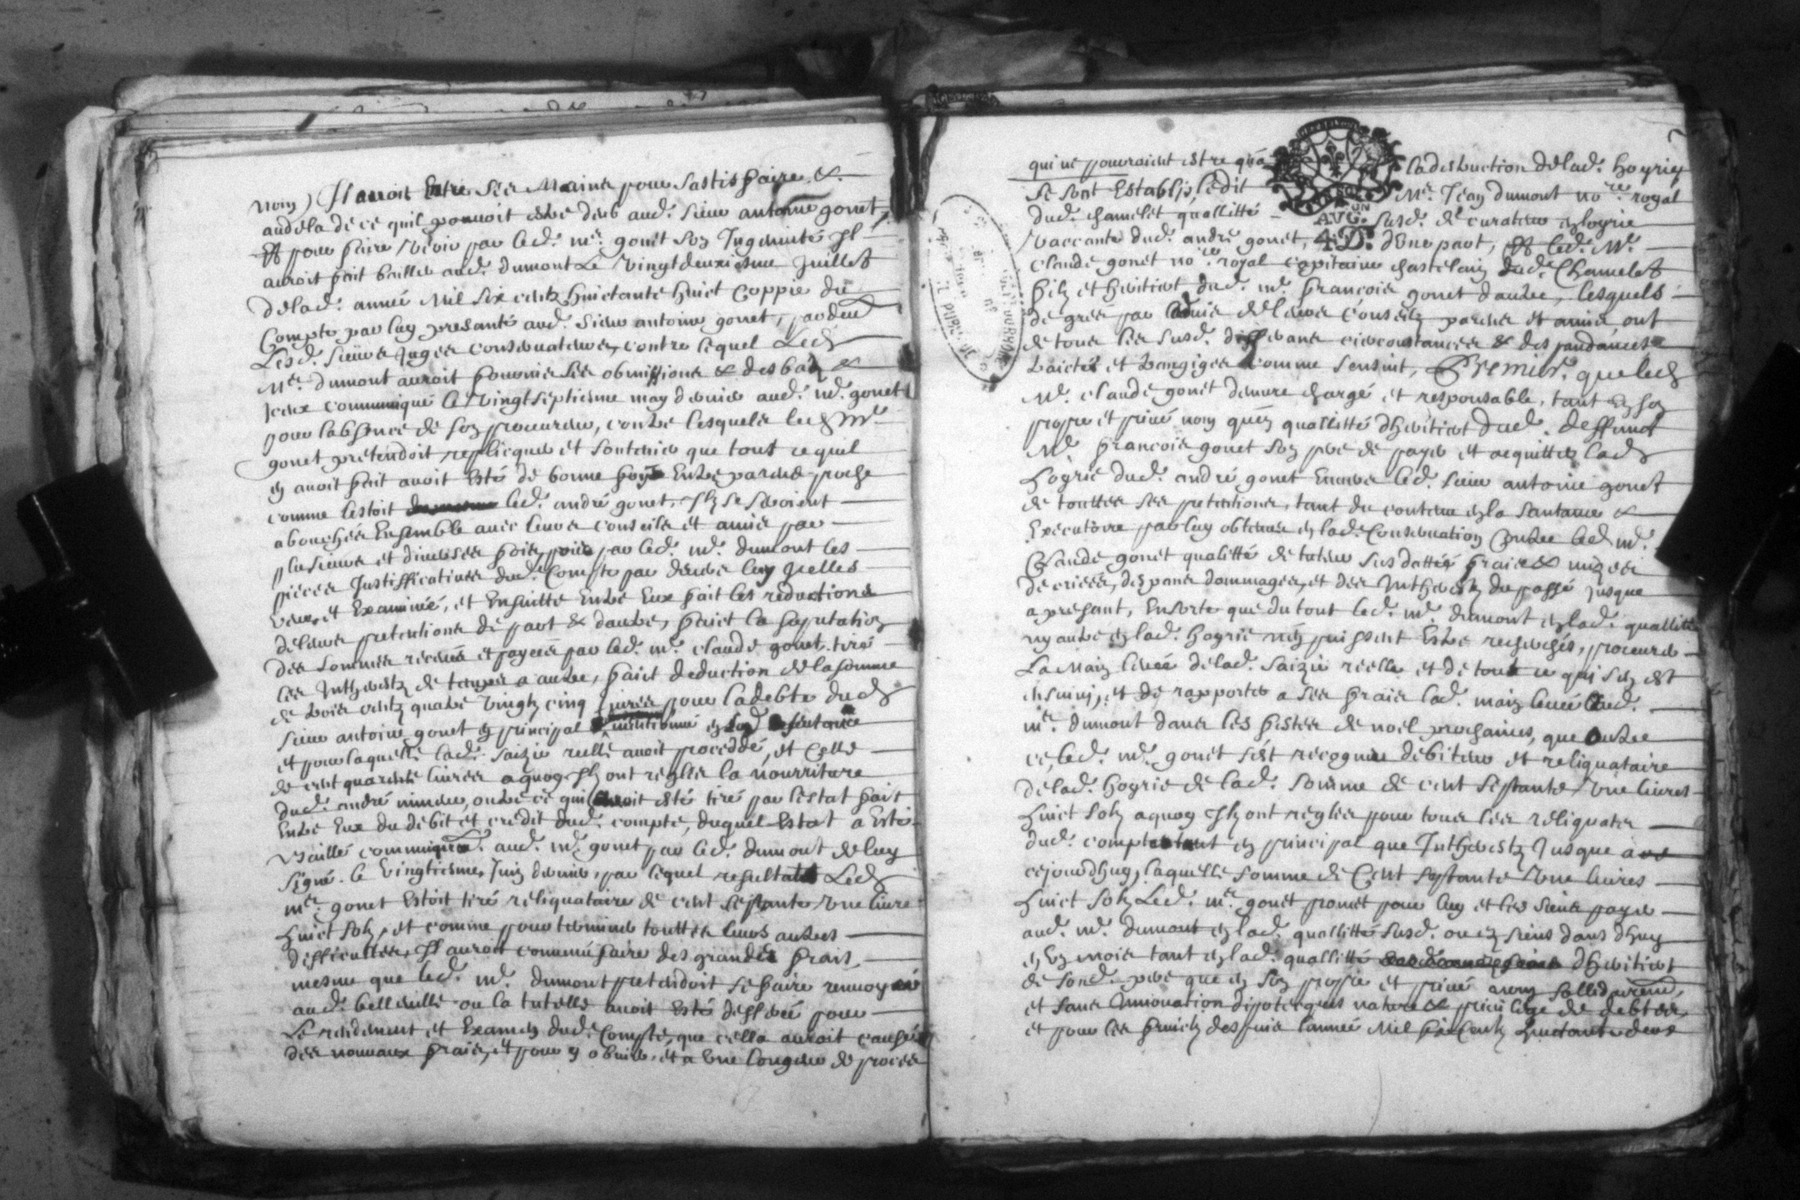 nom) Il auroit Entre Ses Mains pour Sattisfaire &
audela de ce quil pouvoit estre deub aud. sieur antoine gonet,
Et pour faire voir par led. me. gonet son Ingenuité Il
auroit fait bailler aud. dumont Le vingt deuxiesme Juillet
de lad. année Mil Six cents huictante huict Coppie du
Compte par luy presanté aud. sieur antoine gonet, pardevt
Lesd. sieurs Juges conservateurs, contre lequel Led.
Me. dumont auroit fourni des obmissions & desbatz &
Iceux communiqué le vingt septiesme may dernier aud. me. gonet
pour labssence de son procureur, contre lesquels led. Me.
gonet pretendoit repliquer et soutenir que tout ce quil
en avoit fait avoit esté de bonne foy Entre parens proche
comme lestoit led. andré gonet, Ilz se seroient
abouchés Ensemble avec leurs conseils et amis par
plusieurs et diverses fois, puis par led. me. dumont les
pieces Justifficatives dud. Compte par devers luy Icelles
veues et Examinés, et Ensuitte Entre Eux fait les reductions
de leurs pretentions de part & dautre, faict la suputation
des sommes receues et payées par led. me. claude gonet tiré
les Inthereztz de temps a autre, faict deduction de la somme
de trois centz quatre vingtz cinq livres pour la debte dud.
sieur antoine gonet en principal mentionné en lad. sentance
et pour laquelle lad. saizie reelle avoit proceddé, et Celle
de cent quarente livres a quoy Ilz ont reglés la nourriture
dud. andré mineur, outre ce qui avoit esté tiré par lestat fait
Entre Eux du debit et credit dud. compte, duquel Estat a Esté
baillé communiqué aud. me. gonet par led. dumont de luy
signé le vingtiesme Juin dernier, par lequel resultat Led.
me. gonet Estoit tiré reliquataire de cent septante Une livre
huict solz, et comme pour terminer touttes leurs autres
difficultées, Il auroit convenu faire des grandes frais
mesme que led. me. dumont pretendoit se faire renvoyer
aud. belleville ou la tutelle avoit Esté defferée pour
Le rendement et Examen dud. Compte, que cella auroit causé
des nouveaux frais, et pour y obvier, et a Une longueur de proces
qui ne pouvaient estre qua la destruction de lad. hoyrie
se sont Establis, ledit Me. Jean dumont nore. royal
dud. chamelet quallitté susd. de curateur en lhoyrie
vaccante dud. andré gonet, d'Une part, Et led. Me.
Claude gonet nore. royal capitaine chastelain dud. Chamelet
filz et heritier dud. me. françois gonet dautre, lesquels
de gres par ladvis de leurs Conseilz parens et amis, ont
de tous les susd. differans circonstances & despandances
traictés et transigés Comme s'ensuit, Premier. que led.
Me. claude gonet demure chargé et responsable, tant en son
propre et privé nom quen quallitté dheritier dud. deffunct
Me. françois gonet son pere de payer et acquitter lad.
hoyrie dud. andré gonet Envers led. sieur antoine gonet
de touttes ses pretentions, tant du contenu en la santance &
Executoire par luy obtenus en lad. Conservation Contre led. me.
Claude gonet qualitté de tuteur susdattés frais & mizes
de criees, despans dommages, et des Inthereztz du passé jusque
a presant, Ensorte que du tout led. me. dumont en lad. quallitté
ny autre en lad. hoyrie nen puissent Estre recherchés, procurer
La Main levée de lad. saizie reelle et de tout ce qui sen est
ensuivi, et de rapporter a ses frais lad. main levée aud.
me. dumont dans les festes de noel prochaines, que outre
ce, led. me. gonet sest recognu debiteur et reliquataire
de lad. hoyrie de lad. somme de cent septante Une livres
huict solz a quoy Ilz ont reglés pour tous les reliquatz
dud. compte tant en principal que Intherestz Jusque a
cejourdhuy, laquelle somme de Cent septante Une livres
huict solz Led. me. gonet promet pour luy et les siens payer
aud. me. dumont en lad. quallitté susd. ou es siens dans dhuy
en Un mois tant en lad. quallitté dheritier
de sond. pere que en son propre et privé nom sollidairemt
et sans Innovation dipoteques nature & privilege de debtes,
et pour les fruictz despuis lannée Mil six Centz huictante deux